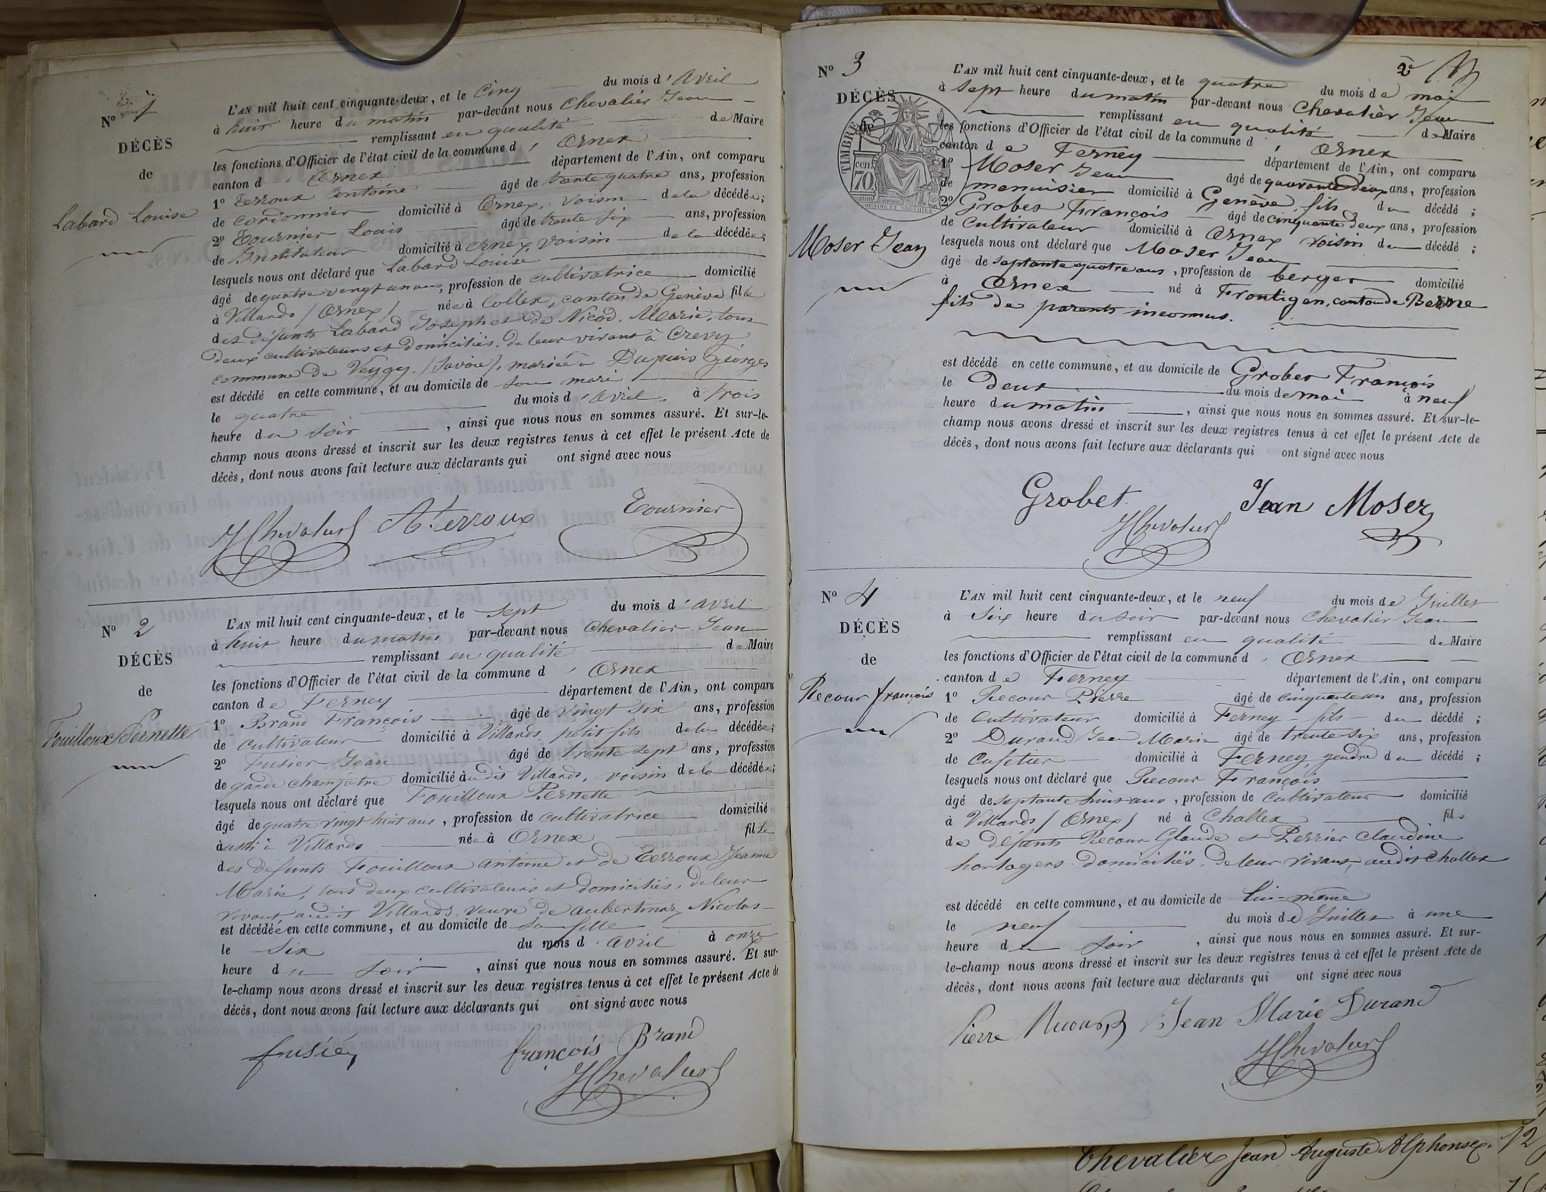 N° 1
DÉCÈS
de
Labard Louise
L'AN mil huit cent cinquante-deux, et le cinq du mois d'Avril
à huit heure du matin par-devant nous Chevalier Jean
remplissant en qualité de Maire
les fonctions d'Officier de l'état civil de la commune d'Ornex
canton d Ornex département de l'Ain, ont comparu
1° Terroux Antoine âgé de trente quatre ans, profession
de cordonnier domicilié à Ornex, voisin de la décédée;
2° Tournier Louis âgé de trente six ans, profession
de Instituteur domicilié à Ornex, voisin de la décédée;
lesquels nous ont déclaré que Labard Louise
âgé de quatre vingt un ans, profession de cultivatrice domicilié
à Villards (Ornex) née à Collex, canton de Genève fille
des défunts Labard Joseph et de Nicod Marie, tous
deux cultivateurs et domiciliés, de leur vivant à Crevy
commune de Veygy (Savoie), mariée à Dupuis Georges
est décédé en cette commune, et au domicile de son mari
le quatre du mois d'Avril, à trois
heure du soir, ainsi que nous nous en sommes assuré. Et sur-le-
champ nous avons dressé et inscrit sur les deux registres tenus à cet effet le présent Acte de
décès, dont nous avons fait lecture aux déclarants qui ont signé avec nous
JChevalier Ate Terroux Tournier
N° 2
DÉCÈS
de
Fouilloux Pernette
L'AN mil huit cent cinquante-deux, et le sept du mois d'Avril
à huit heure du matin par-devant nous Chevalier Jean
remplissant en qualité de Maire
les fonctions d'Officier de l'état civil de la commune d'Ornex
canton de Ferney département de l'Ain, ont comparu
1° Brand François âgé de vingt six ans, profession
de cultivateur domicilié à Villards, petit fils de la décédée;
2° Fusier Jean âgé de trente sept ans, profession
de garde champêtre domicilié à udit Villards, voisin de la décédée;
lesquels nous ont déclaré que Fouilloux Pernette
âgé de quatre vingt huit ans, profession de cultivatrice domicilié
à udit Villards née à Ornex fille
des défunts Fouilloux Antoine et de Terroux Jeanne
Marie, tous deux cultivateurs et domiciliés, de leur
vivant audit Villards, veuve de Aubertinaz Nicolas
est décédée en cette commune, et au domicile de sa fille
le Six du mois d'Avril à onze
heure du soir, ainsi que nous nous en sommes assuré. Et sur-
le-champ nous avons dressé et inscrit sur les deux registres tenus à cet effet le présent Acte de
décès, dont nous avons fait lecture aux déclarants qui ont signé avec nous
fusier françois Brand
JChevalier
2e
N° 3
DÉCÈS
de
TIMBRE
70 cent
Moser Jean
L'AN mil huit cent cinquante-deux, et le quatre du mois de mai
à Sept heure du matin par-devant nous Chevalier Jean
remplissant en qualité de Maire
les fonctions d'Officier de l'état civil de la commune d'Ornex
canton de Ferney département de l'Ain, ont comparu
1° Moser Jean âgé de quarante deux ans, profession
de menuisier domicilié à Genève, fils du décédé;
2° Grobet François âgé de cinquante deux ans, profession
de Cultivateur domicilié à Ornex voisin du décédé;
lesquels nous ont déclaré que Moser Jean
âgé de septante quatre ans, profession de berger domicilié
à Ornex né à Frontigen, canton de Berne
fils de parents inconnus.
est décédé en cette commune, et au domicile de Grobet François
le Deux du mois de mai à neuf
heure du matin, ainsi que nous nous en sommes assuré. Et sur-le-
champ nous avons dressé et inscrit sur les deux registres tenus à cet effet le présent Acte de
décès, dont nous avons fait lecture aux déclarants qui ont signé avec nous
Grobet Jean Moser
JChevalier
N° 4
DÉCÈS
de
Recour françois
L'AN mil huit cent cinquante-deux, et le neuf du mois de Juillet
à Six heure du soir par-devant nous Chevalier Jean
remplissant en qualité de Maire
les fonctions d'Officier de l'état civil de la commune d'Ornex
canton de Ferney département de l'Ain, ont comparu
1° Recour Pierre âgé de cinquante un ans, profession
de Cultivateur domicilié à Ferney fils du décédé;
2° Durand Jean Marie âgé de trente six ans, profession
de Cafetier domicilié à Ferney, gendre du décédé;
lesquels nous ont déclaré que Recour François
âgé de septante huit ans, profession de Cultivateur domicilié
à Villards (Ornex) né à Challex fils
de défunts Recour Glaude et Perrier Claudine
horlogers domiciliés, de leur vivant, audit Challex
est décédé en cette commune, et au domicile de lui-même
le neuf du mois de Juillet à une
heure du soir, ainsi que nous nous en sommes assuré. Et sur-
le-champ nous avons dressé et inscrit sur les deux registres tenus à cet effet le présent Acte de
décès, dont nous avons fait lecture aux déclarants qui ont signé avec nous
Pierre Recour Jean Marie Durand
JChevalier
Chevalier Jean Auguste Alphonse. 12